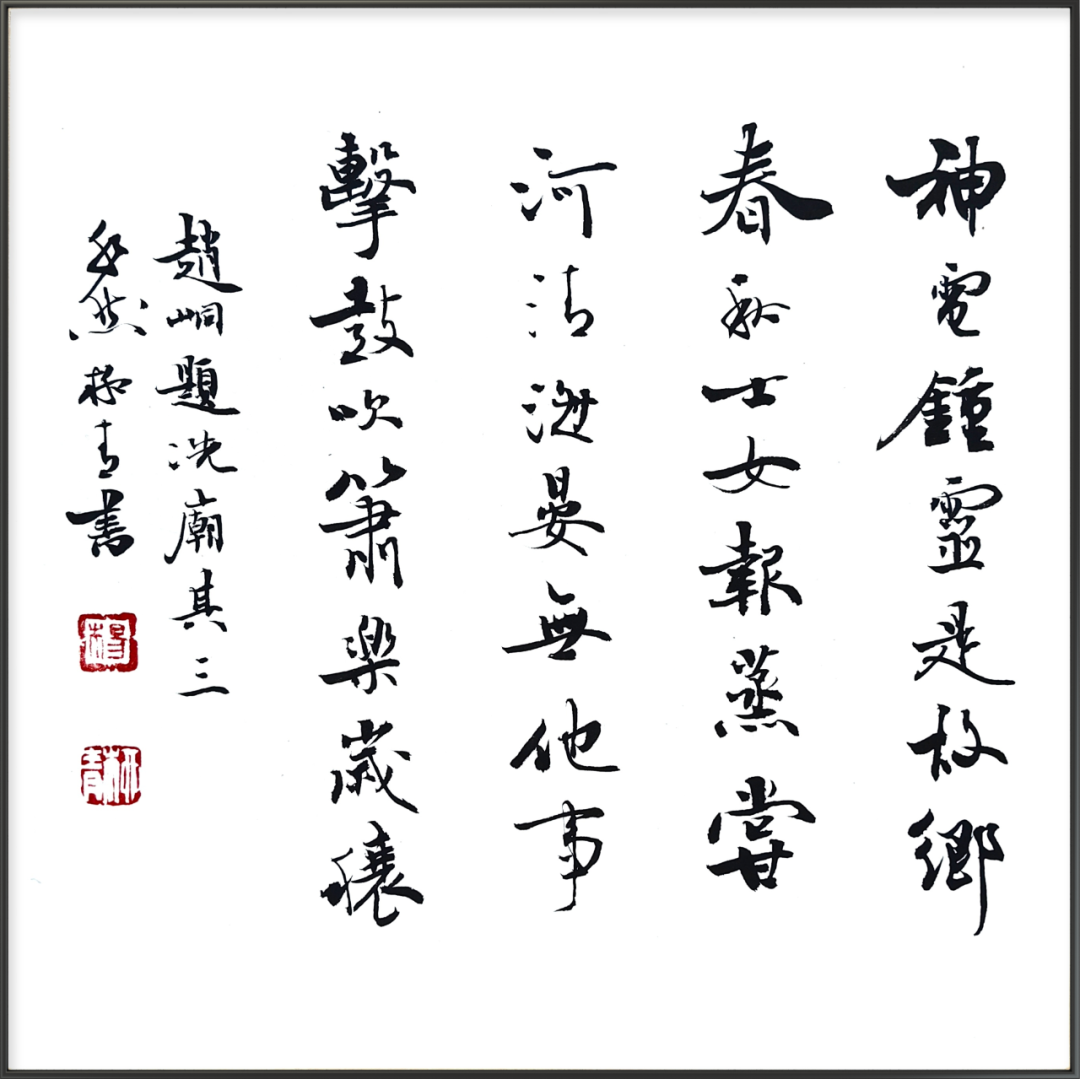 神電鍾靈是故鄉
春秋士女報蒸甞
河清海晏無他事
擊鼓吹簫樂歲穰
趙峒題冼廟其三
然青書